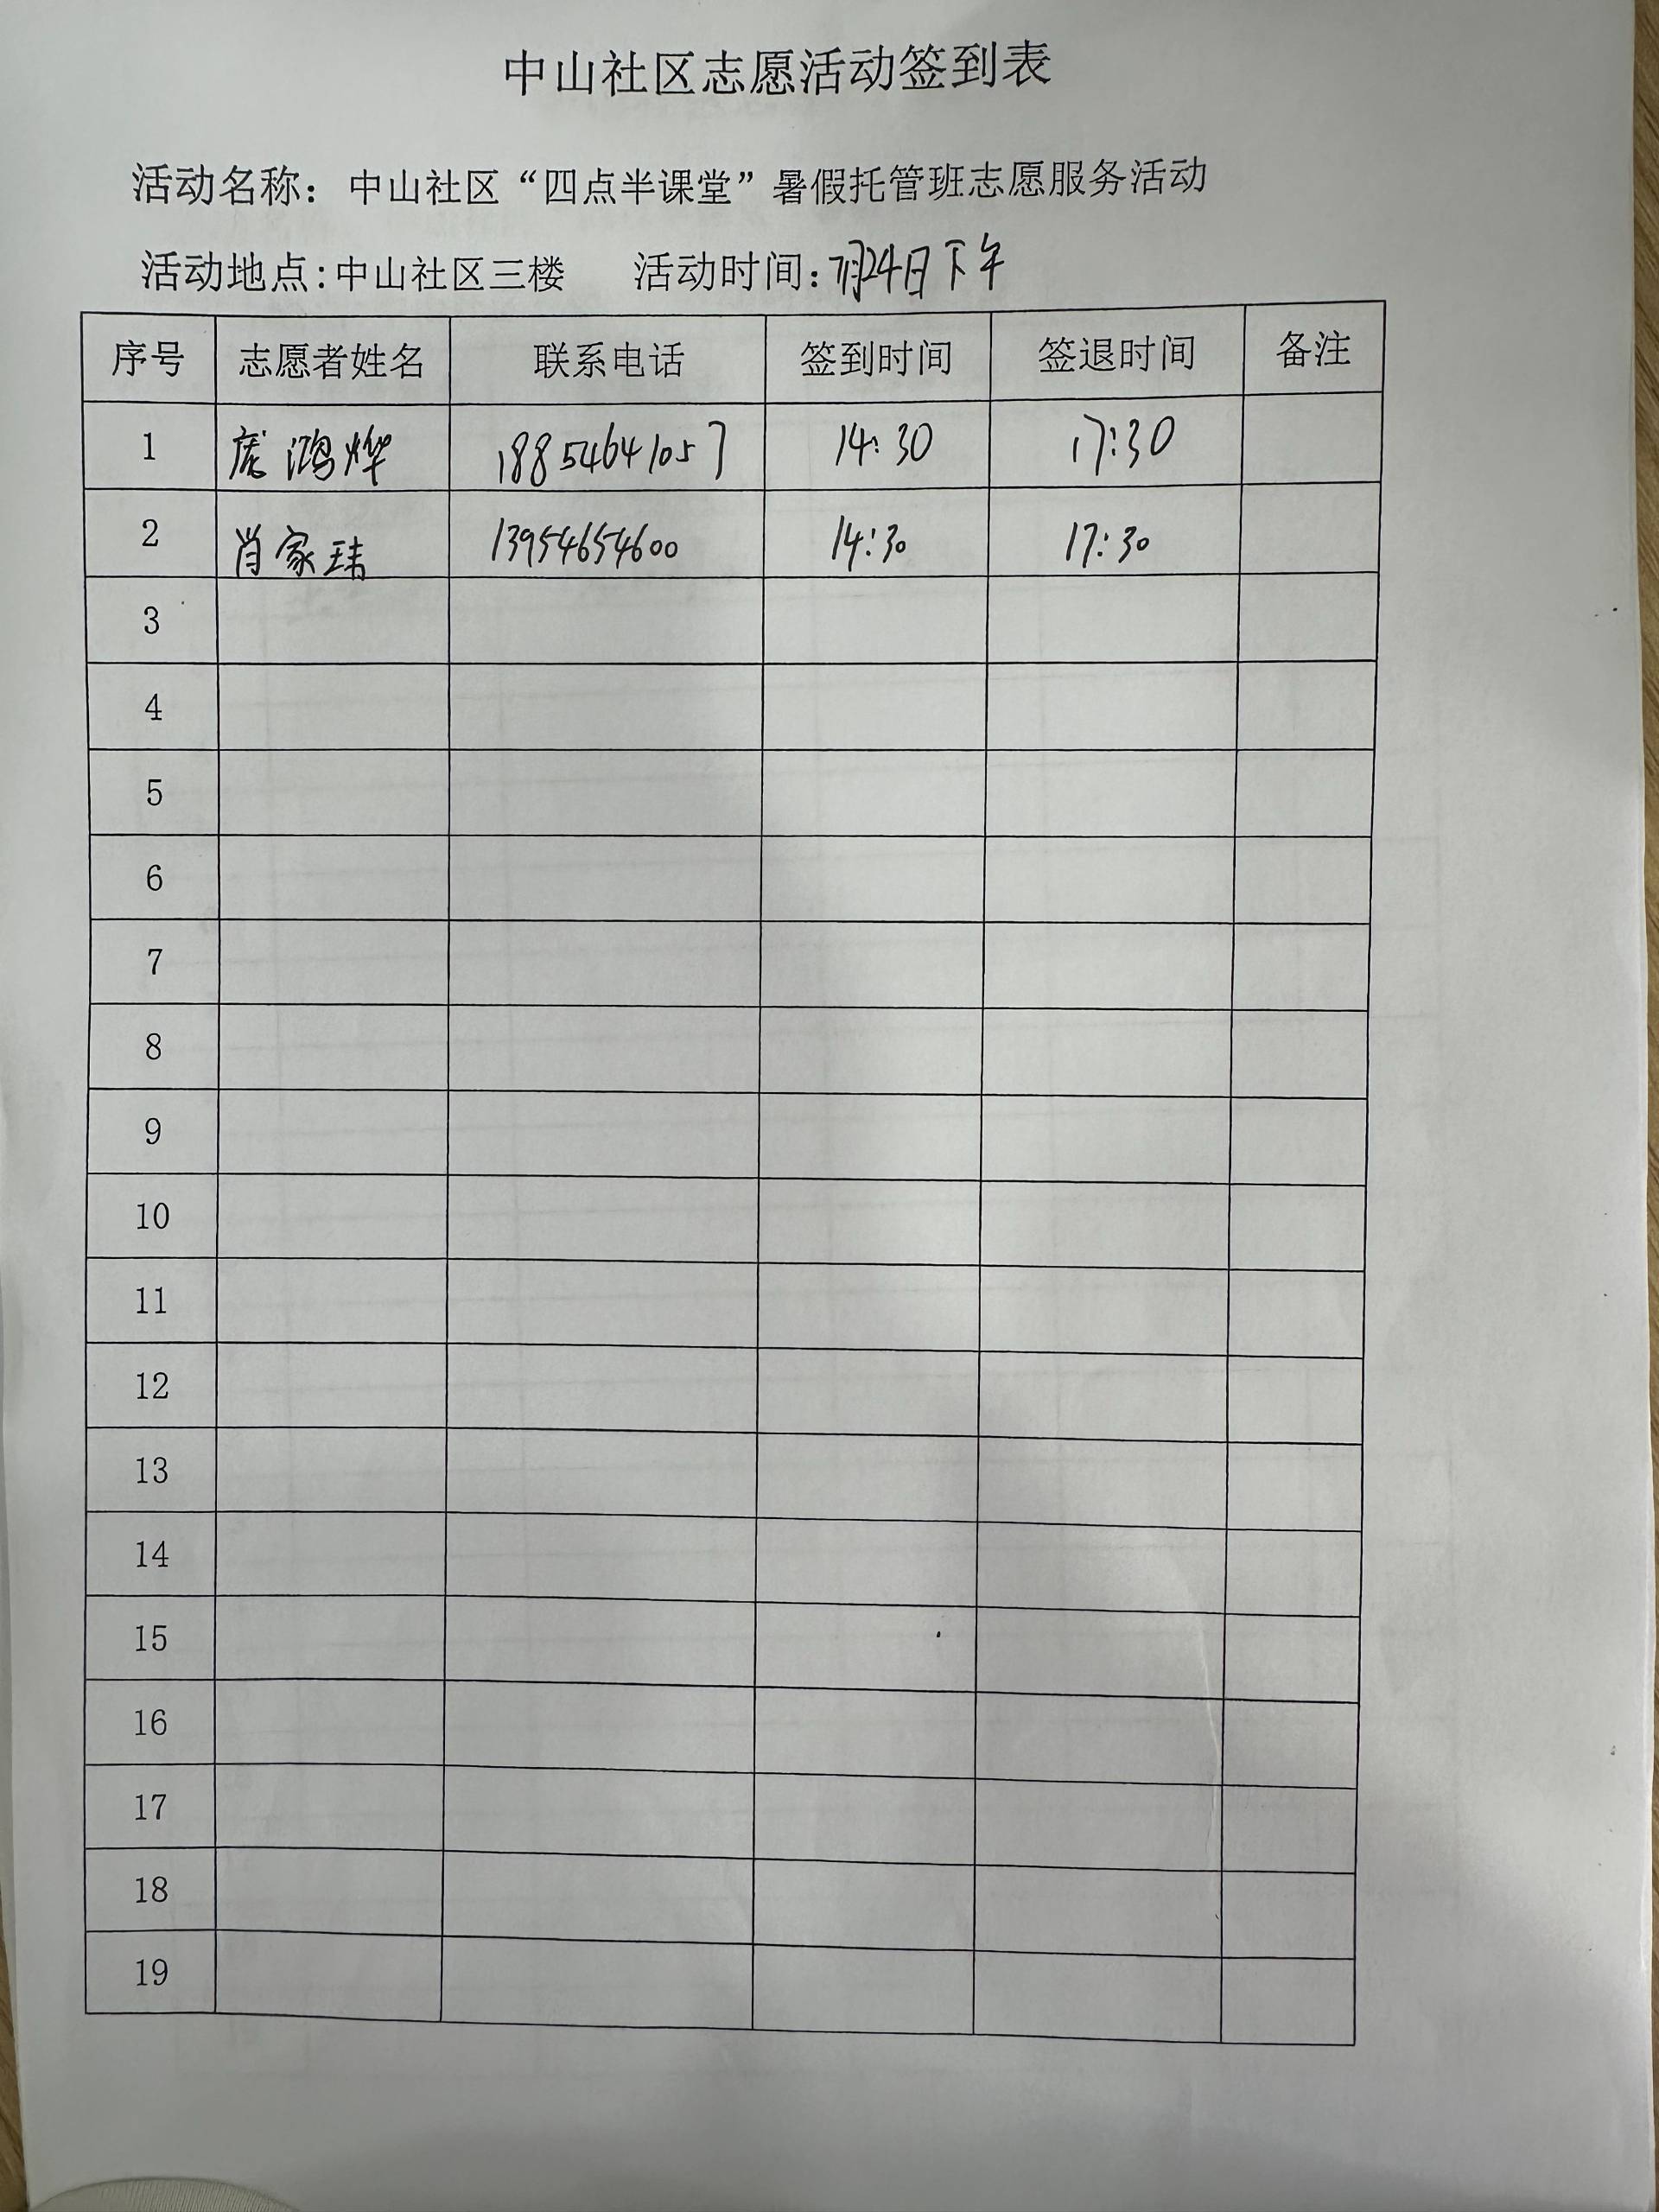 中山社区志愿活动签到表
活动名称：中山社区“四点半课堂”暑假托管班志愿服务活动
活动地点:中山社区三楼 活动时间:7月24日下午
序号 志愿者姓名 联系电话 签到时间 签退时间 备注
1 鸿烨 18854641057 14:30 17:30
2 肖家玮 13954654600 14:30 17:30
3
4
5
6
7
8
9
10
11
12
13
14
15
16
17
18
19